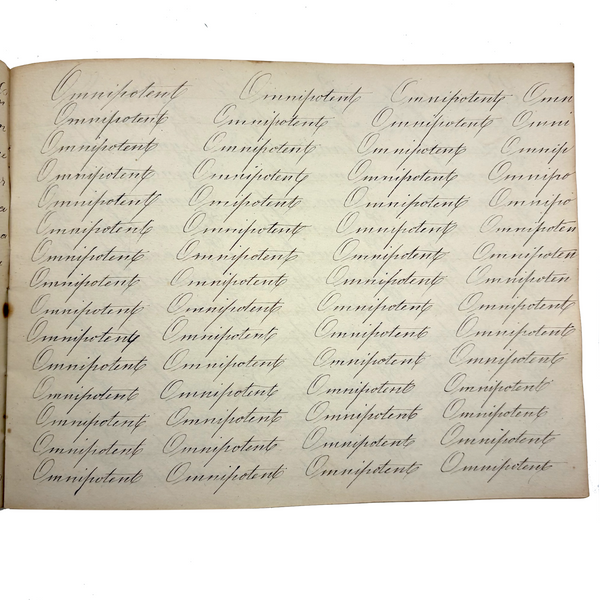 Omnipotent Omnipotent Omnipotent Omn
Omnipotent Omnipotent Omnipotent Omni
Omnipotent Omnipotent Omnipotent Omnip
Omnipotent Omnipotent Omnipotent Omnipo
Omnipotent Omnipotent Omnipotent Omnipo
Omnipotent Omnipotent Omnipotent Omnipoten
Omnipotent Omnipotent Omnipotent Omnipoten
Omnipotent Omnipotent Omnipotent Omnipoten
Omnipotent Omnipotent Omnipotent Omnipotent
Omnipotent Omnipotent Omnipotent Omnipotent
Omnipotent Omnipotent Omnipotent Omnipotent
Omnipotent Omnipotent Omnipotent Omnipotent
Omnipotent Omnipotent Omnipotent Omnipotent
Omnipotent Omnipotent Omnipotent Omnipotent
Omnipotent Omnipotent Omnipotent Omnipotent